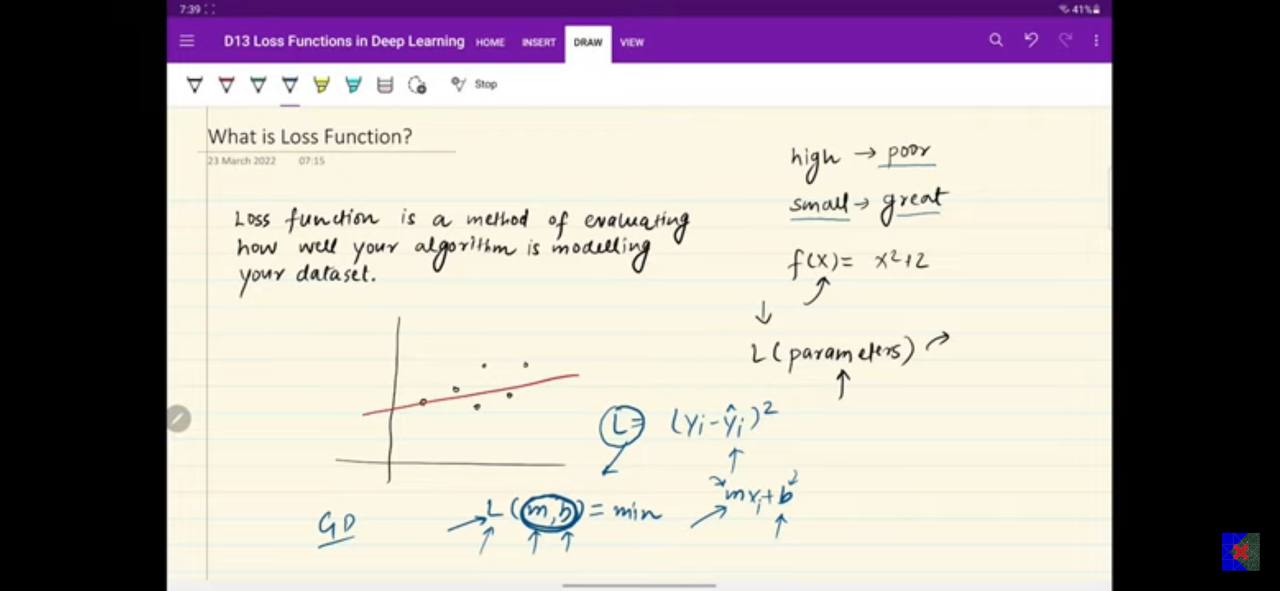 7:39
41%
D13 Loss Functions in Deep Learning HOME INSERT DRAW VIEW
Stop
What is Loss Function?
23 March 2022 07:15
Loss function is a method of evaluating
how well your algorithm is modelling
your dataset.
high → poor
small → great
f(x) = x²+2
L(parameters)
L = (yi - ŷi)²
mxi + b
L (m, b) = min
GD